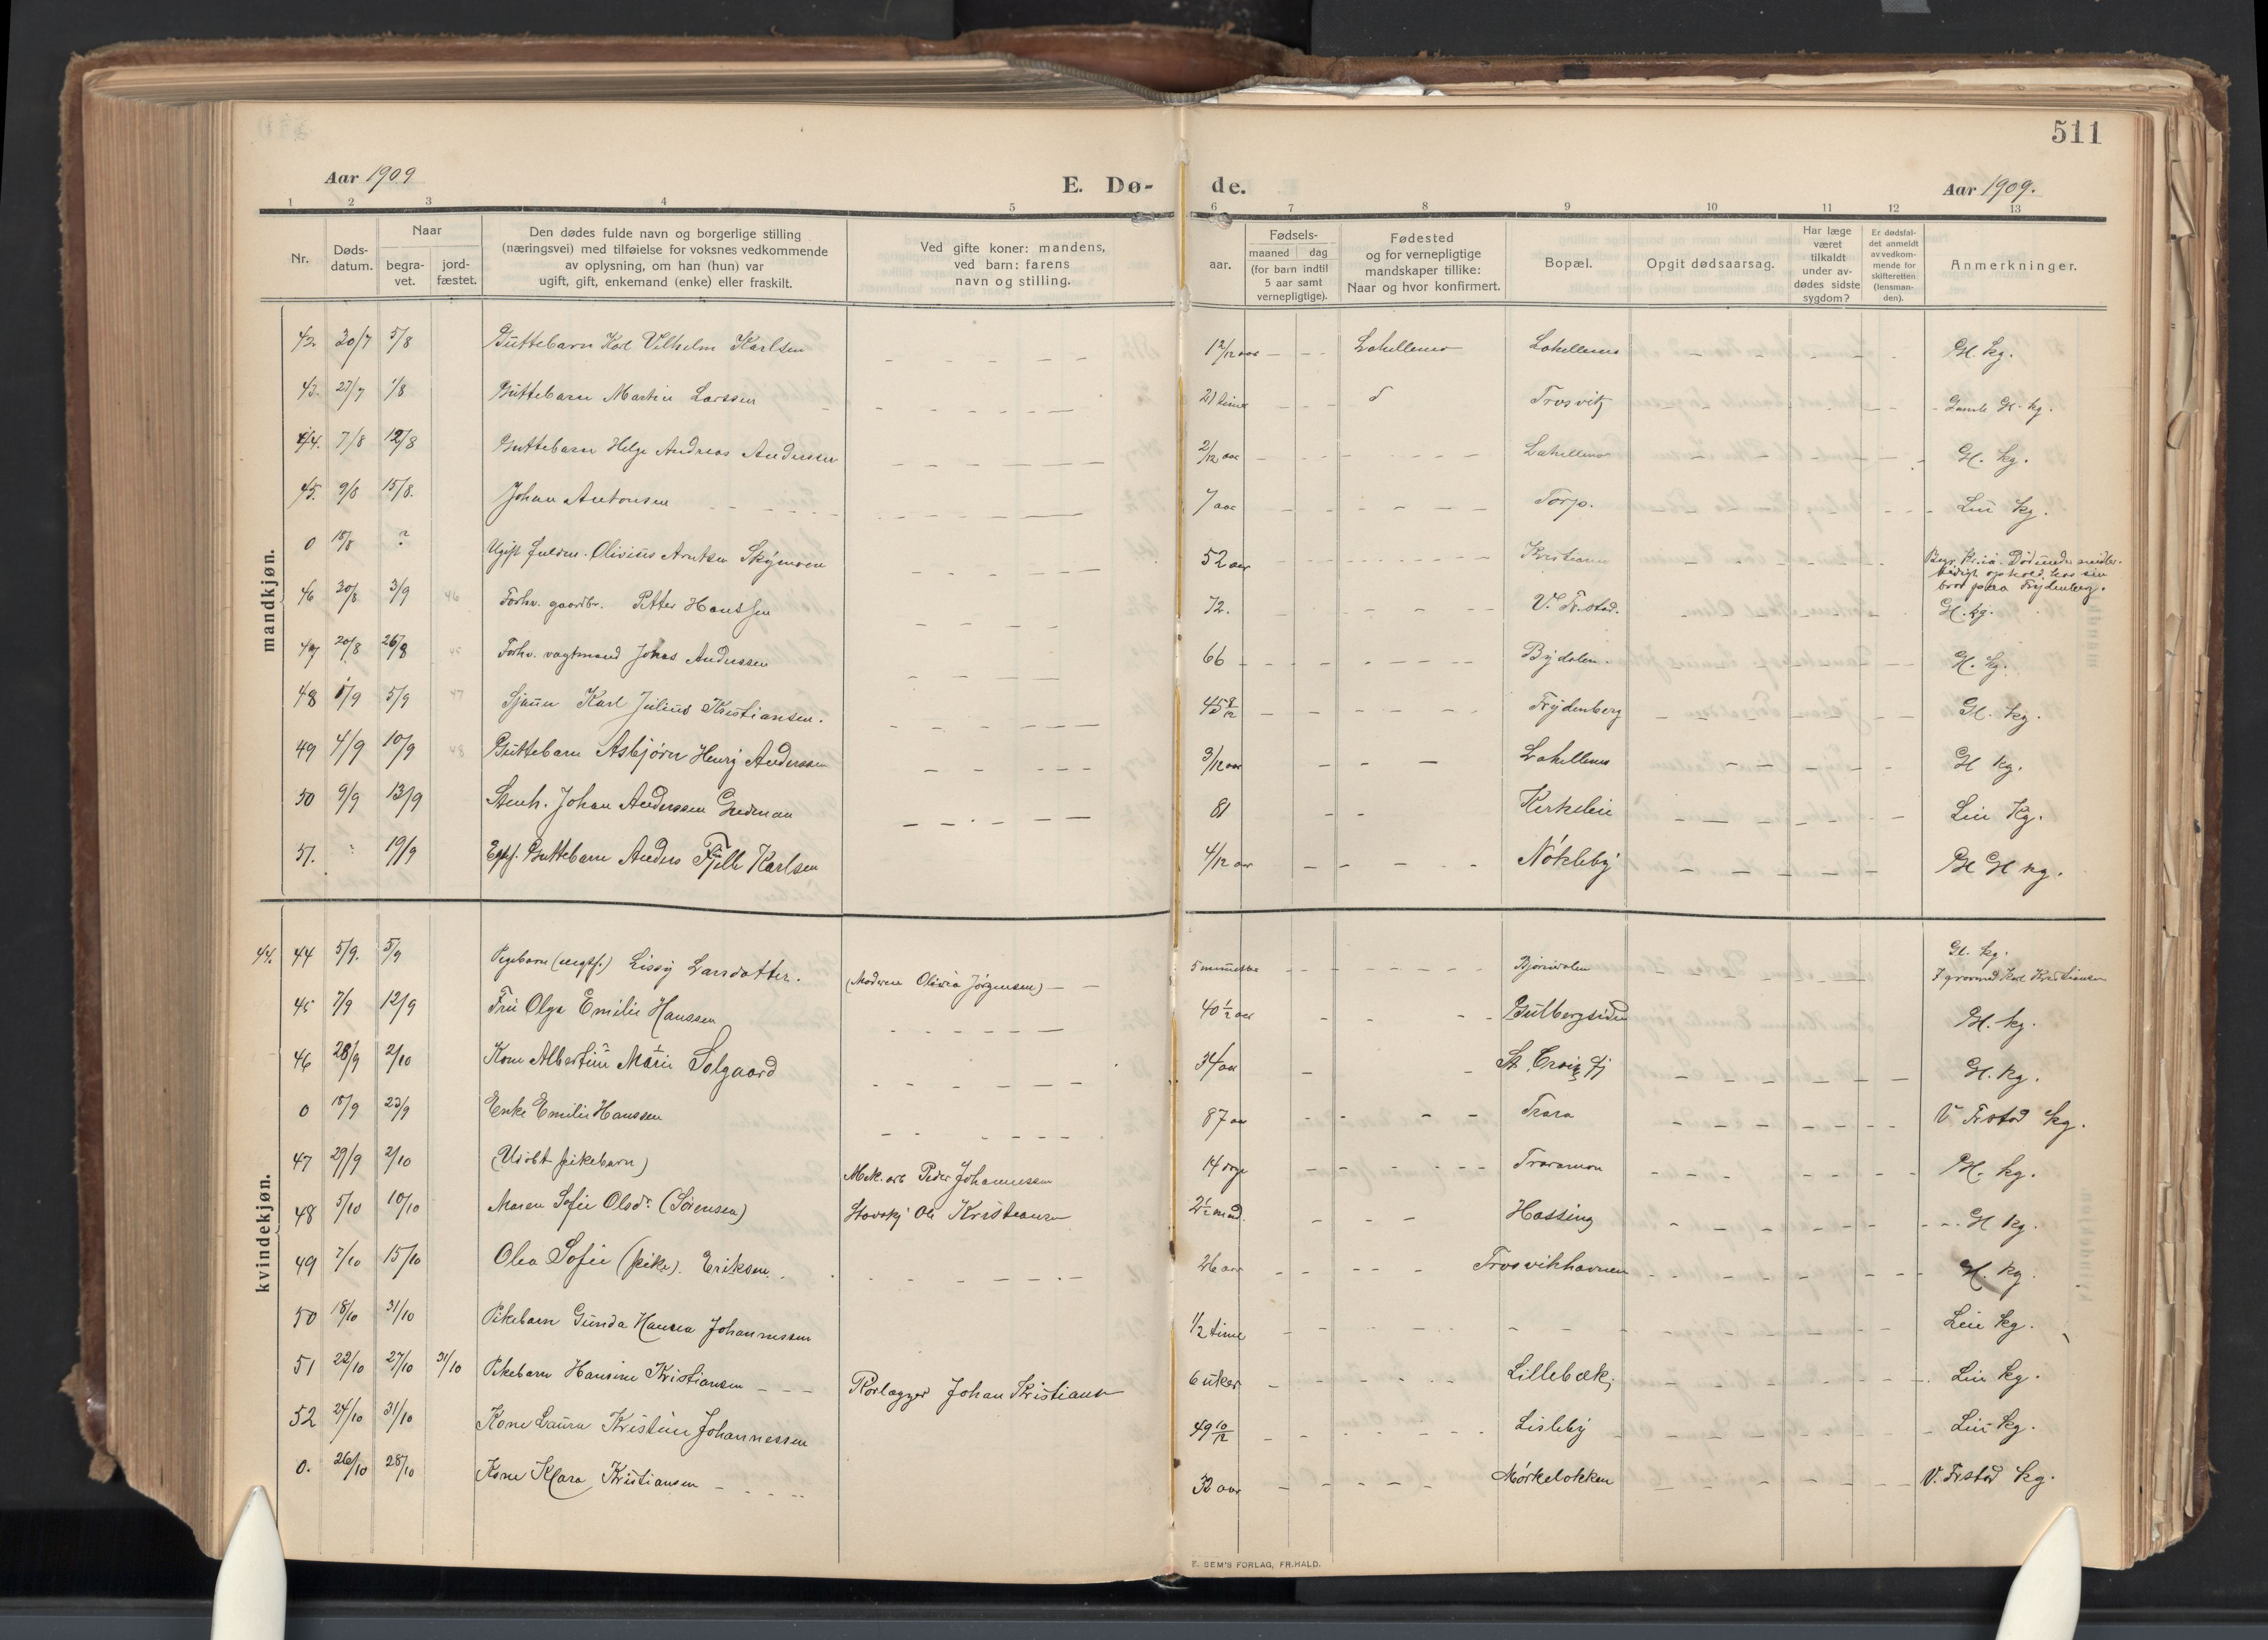 511
Aar 1909
E. Dø- de.
Aar 1909.
1 2 3 4 5 6 7 8 9 10 11 12 13
Nr.
Døds-
datum.
Naar
begra-
vet.
jord-
fæstet.
Den dødes fulde navn og borgerlige stilling
(næringsvei) med tilføielse for voksnes vedkommende
av oplysning, om han (hun) var
ugift, gift, enkemand (enke) eller fraskilt.
Ved gifte koner: mandens,
ved barn: farens
navn og stilling.
aar.
Fødsels-
maaned dag
(for barn indtil
5 aar samt
vernepligtige).
Fødested
og for vernepligtige
mandskaper tillike:
Naar og hvor konfirmert.
Bopæl.
Opgit dødsaarsag.
Har læge
været
tilkaldt
under av-
dødes sidste
sygdom?
Er dødsfal-
det anmeldt
av vedkom-
mende for
skifteretten
(lensman-
den).
Anmerkninger.
mandkjøn.
42. 30/7 5/8 Guttebarn Karl Vilhelm Karlsen 1 2/12 aar Lahellemo Lahellemo Gl. kg.
43. 27/7 1/8 Guttebarn Martin Larssen 21 time Trosvik Gamle Gl. kg.
44. 7/8 12/8 Guttebarn Helge Andreas Anderssen 2/12 aar Lahellemo Gl. kg.
45. 9/8 15/8. Johan Antonsen 7 aar Torp. Lui kg.
0 18/8 ? Ugift Olivius Arntsen 52 aar Kristiania
Død under midler-
tidigt ophold hos sin
bror paa Frydenberg.
46 30/8 3/9 46 Forhv. gaardbr. Petter Hanssen 72. V. Fr.stad. Gl. kg.
47 20/8 26/8 45 Forhv. vagtmand Johas Anderssen 66 Bydalen. Gl. kg.
48 1/9 5/9 47 Sjaum Karl Julius Kristiansen. 45 9/12 Frydenberg Gl. kg.
49 4/9 10/9 48 Guttebarn Asbjørn Henry Anderssen 3/12 aar Lahellemo Gl kg.
50 9/9 13/9 Stenh. Johan Anderssen 81 Kirkeleie Lui Kg.
51. 19/9 Guttebarn Anders Karlsen 4/12 aar Nøkleby Gl kg.
kvindekjøn.
44. 44 5/9. 5/9 Pigebarn (uegtf.) Lissy Larsdatter. (Moderen Olivia Jørgensen) 5 minutter Gl. kg.
I grav med Karl Kristiansen
45 7/9 12/9 Fru Olga Emilie Hanssen 40 1/2 aar Gl. kg.
46 28/9 2/10 Kone Albertine Marie Solgaard 34 aar St. Croix Gl. kg.
0 18/9 23/9 Enke Emilie Hanssen 87 aar Trara V. Frstad kg.
47 29/9 2/10 (Udøbt pikebarn) Mek. arb Peder Johannessen 14 dage Traramoen Gl. kg.
48 5/10 10/10 Maren Sofie Olsdr. (Sørensen) Ole Kristiansen 2 1/2 mnd. Hassing Gl kg.
49 7/10 15/10 Olea Sofie (pike). Eriksen. 26 aar Trosvikhavnen Gl. kg.
50 18/10 31/10 Pikebarn Gunda Hansea Johannessen 1/2 time Lui kg.
51 22/10 27/10 31/10 Pikebarn Hansine Kristiansen Rørlægger Johan Kristiansen 6 uker Lillebæk Lui kg.
52 24/10 31/10 Kone Laura Kristine Johannessen 49 10/12 Lisleby Lui kg.
0. 26/10 28/10 Kone Klara Kristiansen 32 aar Mørkeløkken V. Frstad kg.
E. SEM'S FORLAG, FR.HALD.